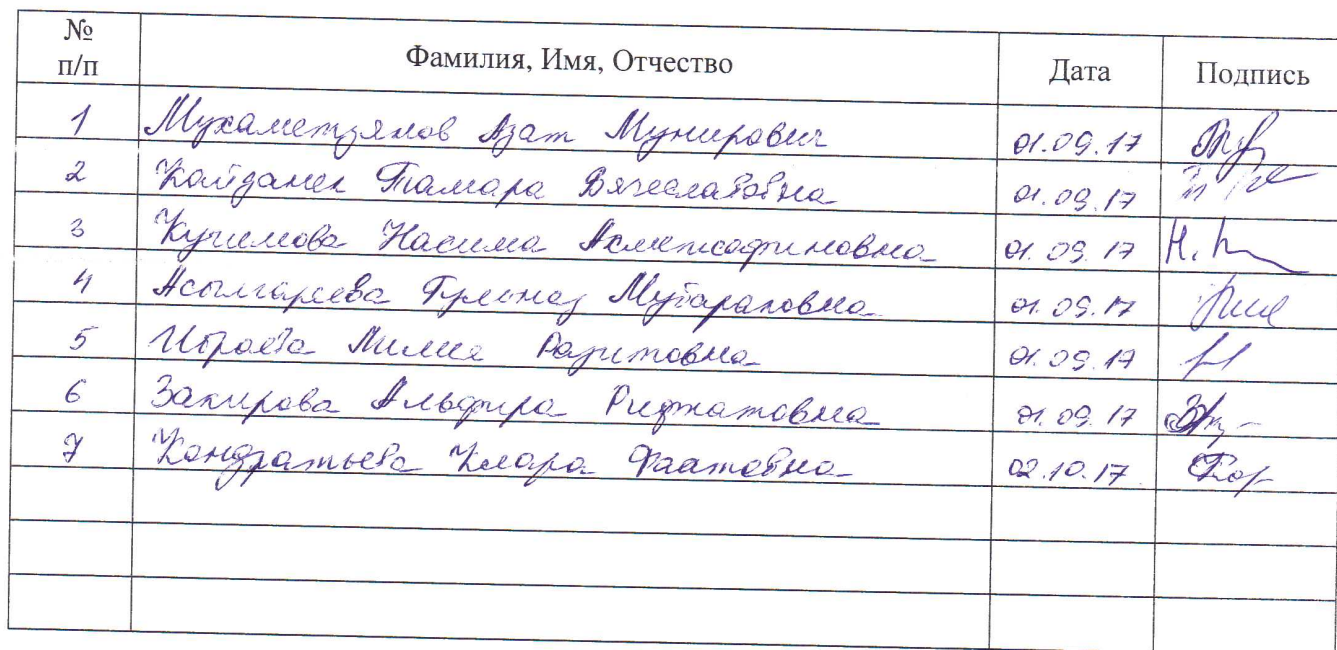 № п/п Фамилия, Имя, Отчество Дата Подпись
1 Мухаметзянов Азат Мунирович 01.09.17
2 Тамара Вячеславовна 01.09.17
3 Кучимова Насима 01.09.17 Н.
4 Асылгареева Гульназ Мубараковна 01.09.17
5 Ибраева Лилия Разитовна 01.09.17
6 Закирова Альфира Рифматовна 01.09.17
7 Кондратьева Клара Фаатовна 02.10.17